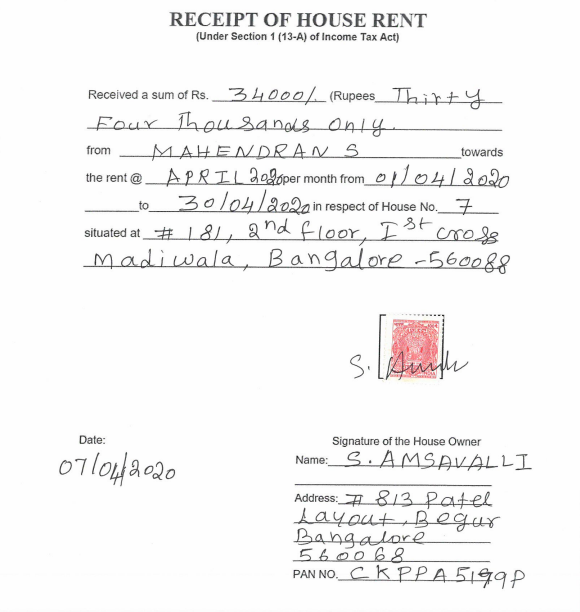 RECEIPT OF HOUSE RENT
(Under Section 1 (13-A) of Income Tax Act)
Received a sum of Rs. 34000/. (Rupees Thirty
Four Thousands Only.
from MAHENDRAN S towards
the rent @ APRIL 2020 per month from 01/04/2020
to 30/04/2020 in respect of House No. 7
situated at # 181, 2nd floor, Ist cross
Madiwala, Bangalore -560088
Date:
07/04/2020
Signature of the House Owner
Name: S. AMSAVALLI
Address: # 813 Patel
Layout, Begur
Bangalore
560068
PAN NO. CKPPA5199P